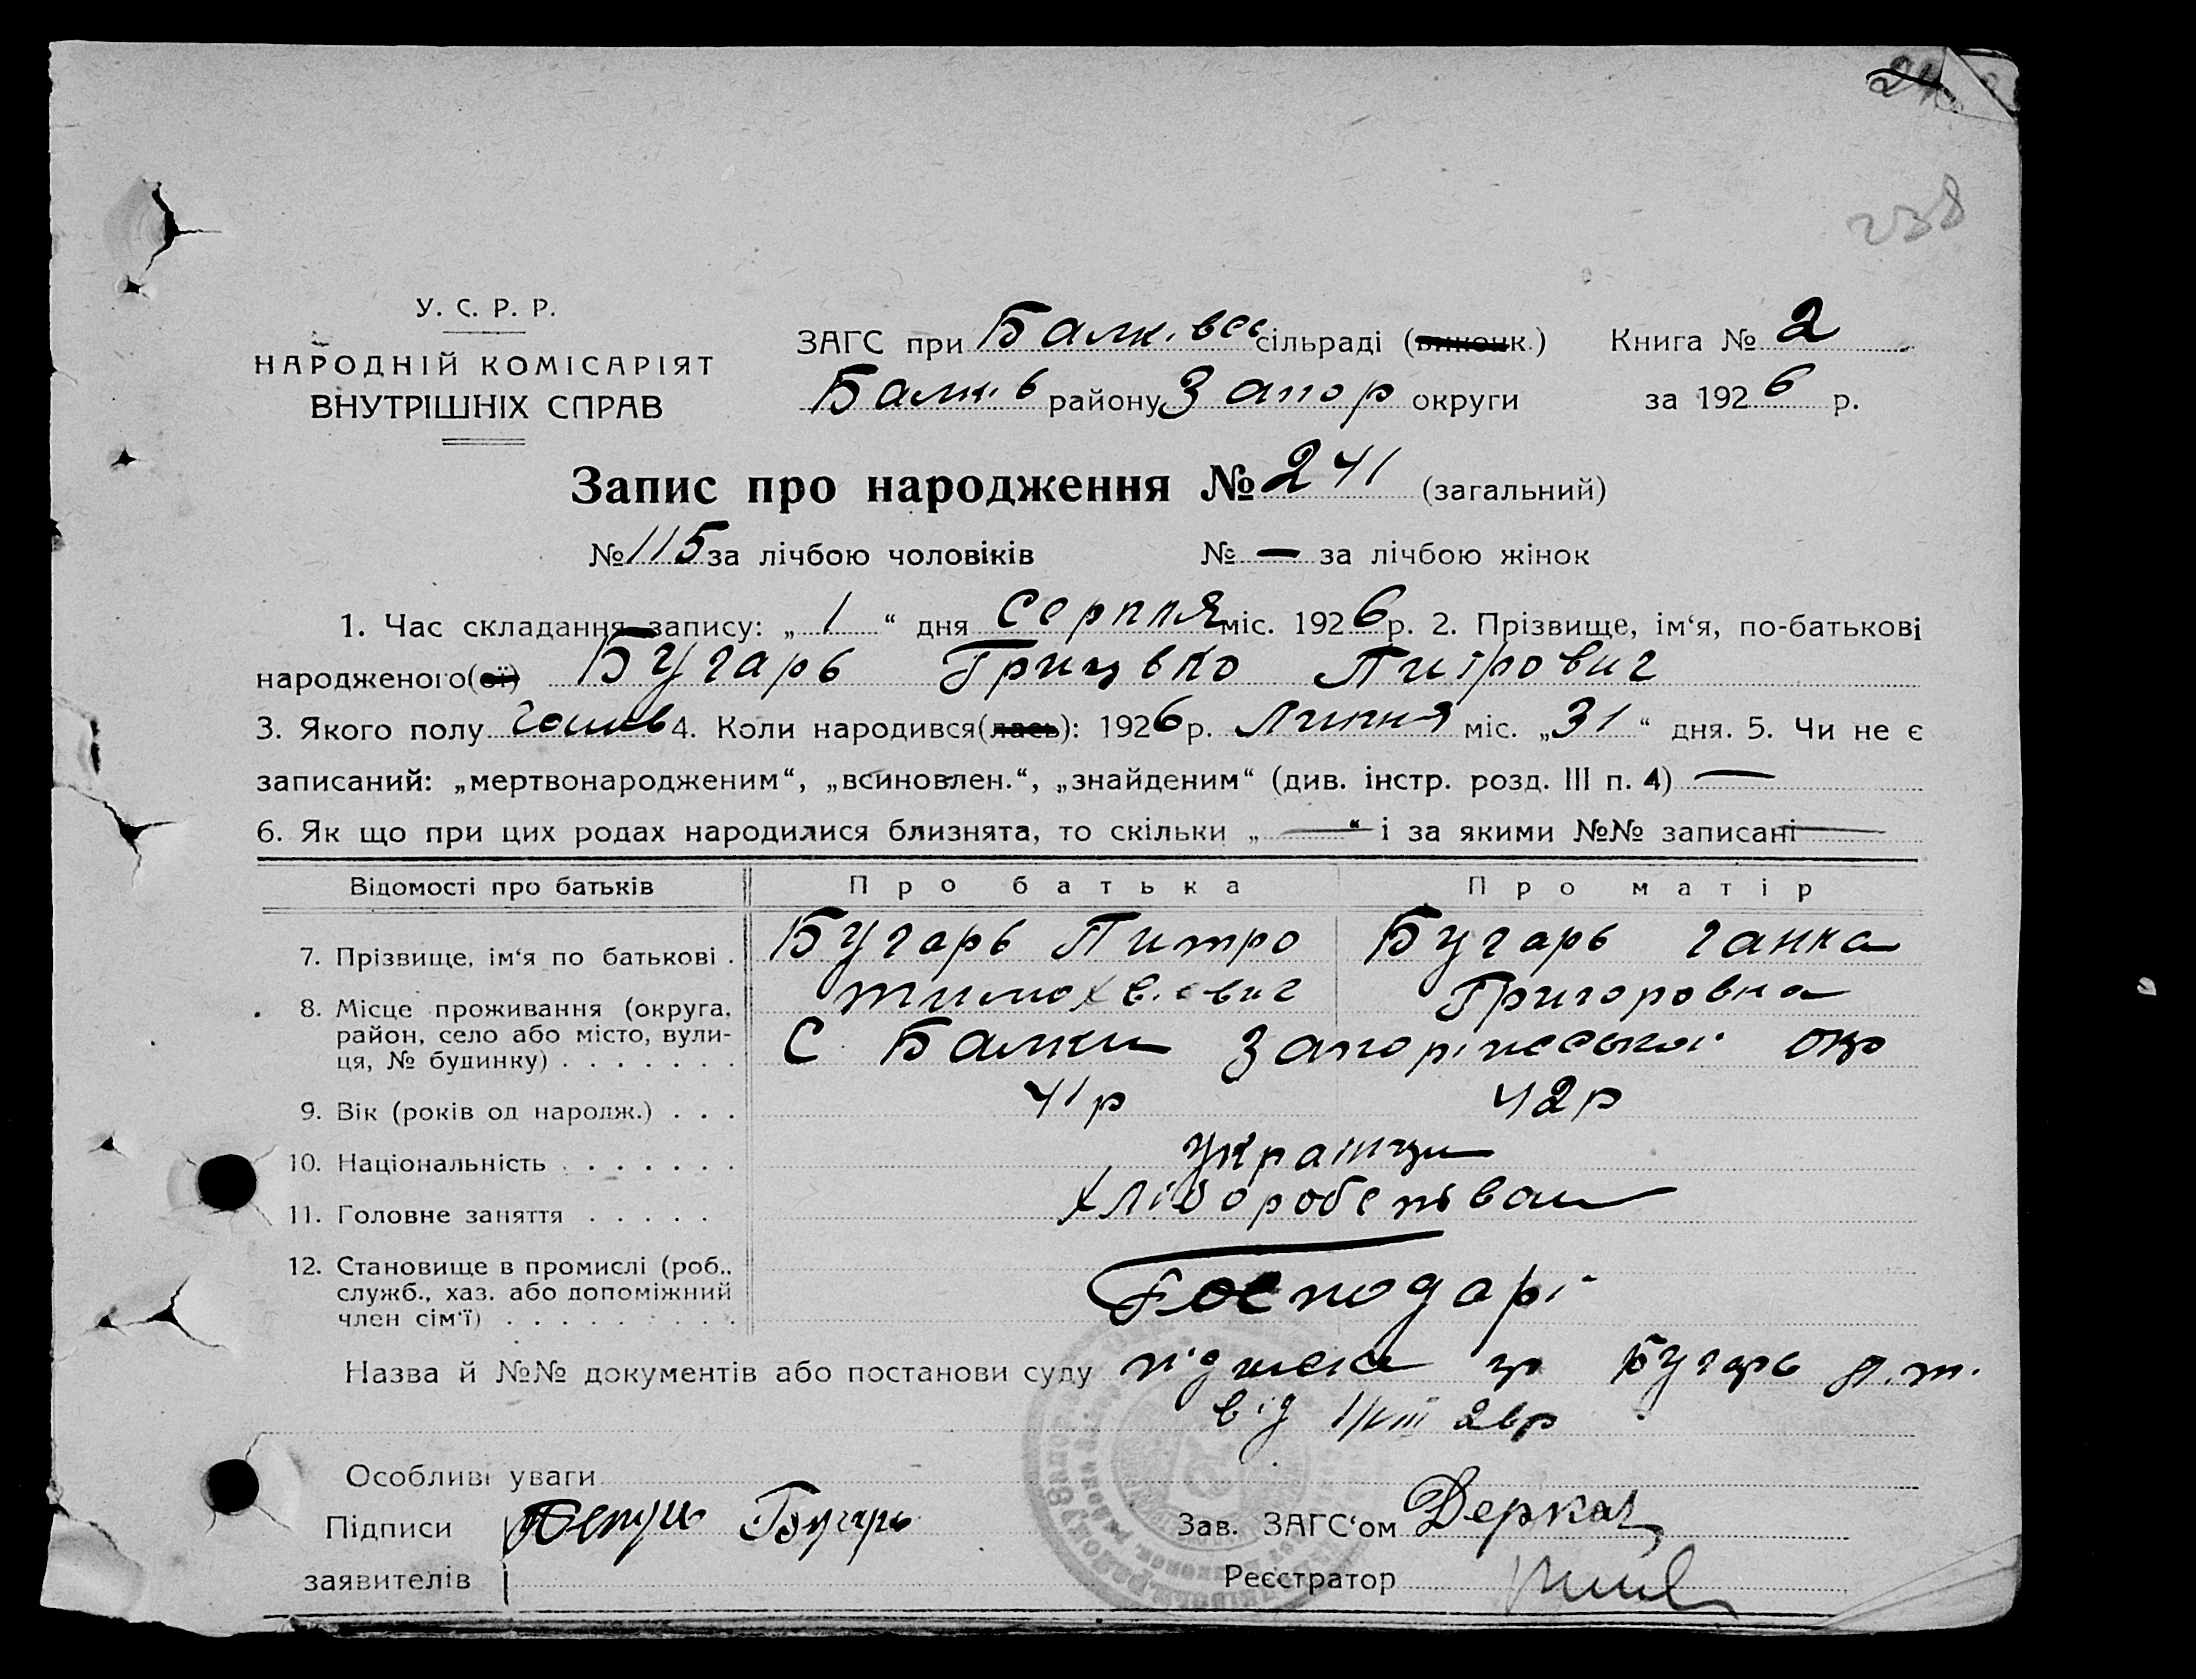 238
У. С. Р. Р.
НАРОДНІЙ КОМІСАРІЯТ
ВНУТРІШНІХ СПРАВ
ЗАГС при сільраді (виконк.) Книга № 2
району Запор округи за 1926 р.
Запис про народження № 241 (загальний)
№ 115 за лічбою чоловіків № — за лічбою жінок
1. Час складання запису: „ 1 “ дня Серпня міс. 1926 р. 2. Прізвище, ім‘я, по-батькові
народженого(ої) Бугарь Грицько Питрович
3. Якого полу 4. Коли народився(лась): 1926 р. Липня міс. „31“ дня. 5. Чи не є
записаний: „мертвонародженим“, „всиновлен.“, „знайденим“ (див. інстр. розд. III п. 4) —
6. Як що при цих родах народилися близнята, то скільки „ — “ і за якими №№ записані —
Відомості про батьків Про батька Про матір
7. Прізвище, ім‘я по батькові . Бугарь Питро Бугарь Ганка
Григоровна
8. Місце проживання (округа,
район, село або місто, вули-
ця, № будинку) . . . . . . . С Балки окр
9. Вік (років од народж.) . . . 41р 42р
10. Національність . . . . . . . Українци
11. Головне заняття . . . . .
12. Становище в промислі (роб.,
служб., хаз. або допоміжний
член сім‘ї) . . . . . . . . . Господарі
Назва й №№ документів або постанови суду підписка гр Бугарь П.Т.
від 1/VIII 26р
Особливі уваги
Підписи Петро Бугарь Зав. ЗАГС‘ом Деркач
заявителів Реєстратор